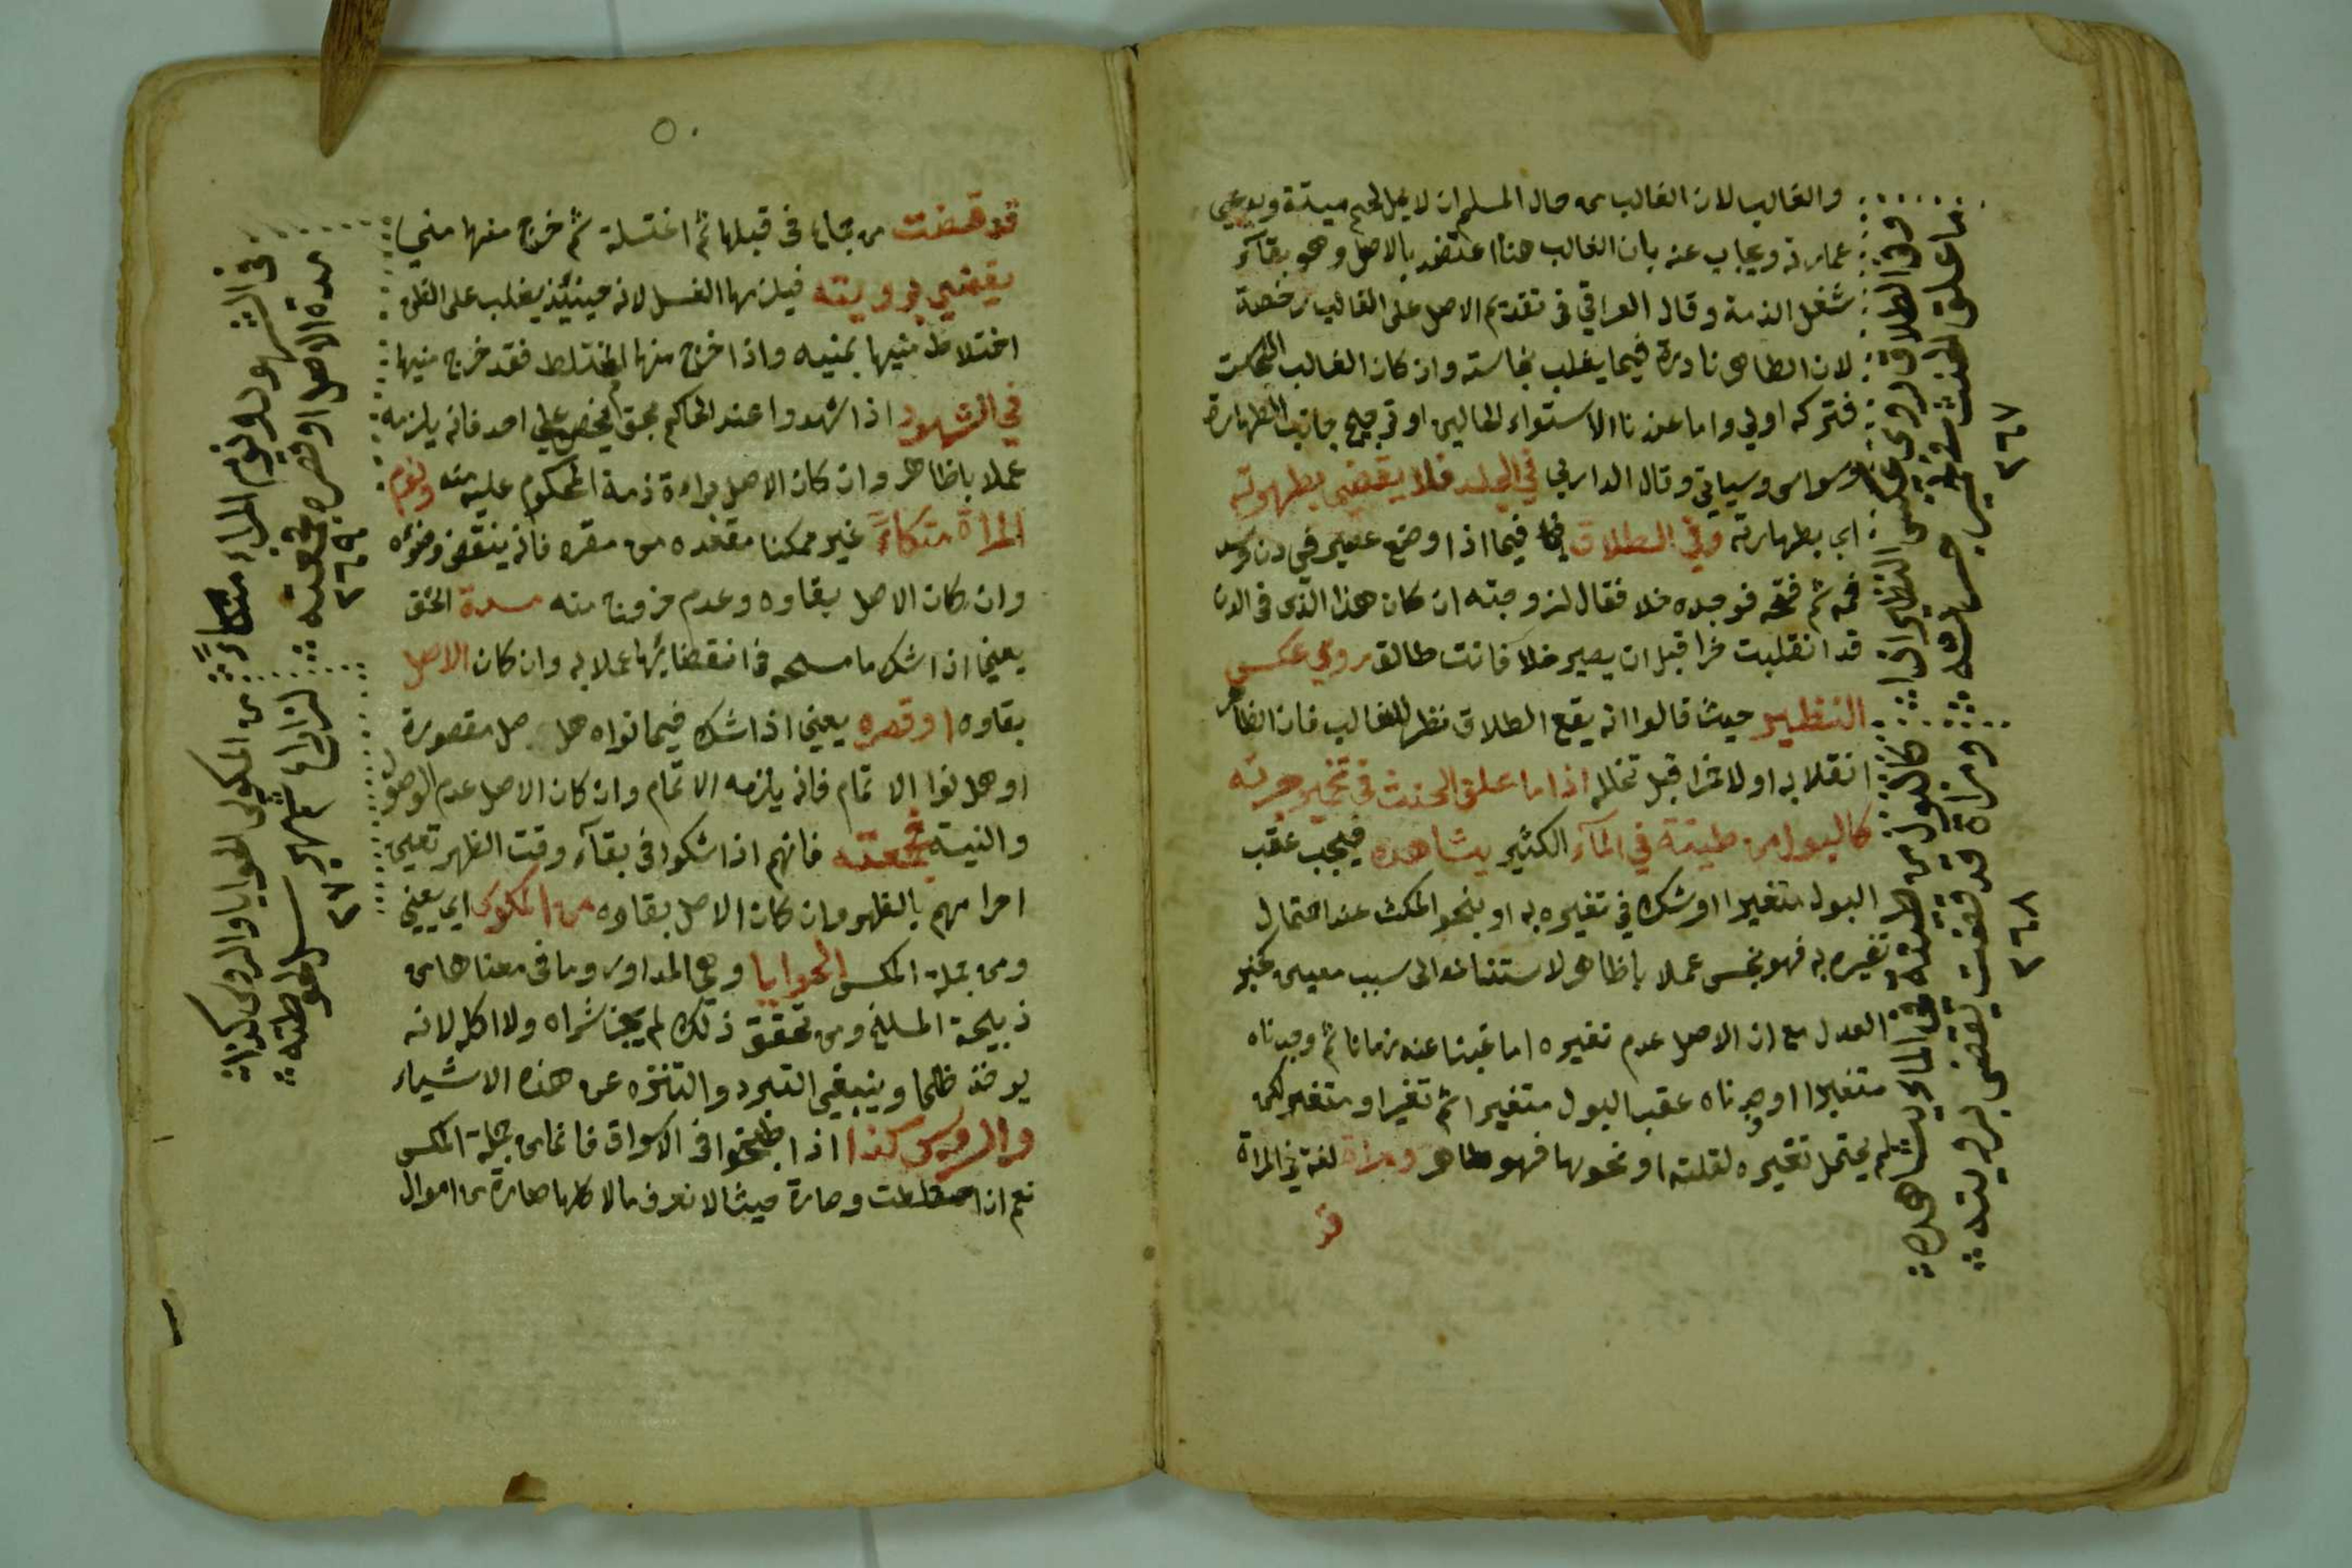 والغالب لان الغالب من حال المسلم ان لا ياكل لحم ميتة
ويجاب عنه بان الغالب هنا اعتضد بالاصل وهو بقآء
شغل الذمة وقال العراقي في تقديم الاصل على الغالب رخصة
لان الطاهر نادرة فيما يغلب نجاسته وان كان الغالب
فتركه اولى واما عند نا الاستواء لحالين او ترجيح جانب الطهارة
وسواس وسياتي وقال الداربي في الجلد فلا يقضي بطهرته
اي بطهارته وفي الطلاق فيما اذا وضع عصير في دن وسد
فمه ثم فتحه فوجده خلا فقال لزوجته ان كان هذا الذي في الدن
قد انقلبت خمرا قبل ان يصير خلا فانت طالق روي عكس
التنظير حيث قالوا انه يقع الطلاق نظرا للغالب فان الظاهر
انقلابه اولا خمرا قبل تخلله اذا ما علق الحنث في تخمير جرته
كالبول من ظبية في المآء الكثير يشاهده فيجب عقب
البول متغيرا او شك في تغيره به او بنحو المكث عند احتمال
تغيره به فهو نجس عملا باظاهر لاستناده الى سبب معين كخبر
العدل مع ان الاصل عدم تغيره اما غبنا عنه زمانا ثم وجدناه
متغيرا او وجدناه عقب البول متغيرا ثم تغيرا و متغير لكن
لم يحتمل تغيره لقلته او نحوها فهو طاهر ومراة لغة في المراة
قد
وفي الطلاق روى عكس التنظير اذا
ما علق الحنث في تخمير جرته
٢٦٧
كالبول من ظبية في الماء يشاهده
ومراة قد قضت تقضى برويته
٢٦٨
٥٠
قد قضت من جماع في قبلها ثم اغتسلة ثم خرج منها منيها
يقضي برويته فيلزمها الغسل لانه حينئذ يغلب على الظن
اختلاط منيها بمنيه واذا خرج منها المختلط فقد خرج منيها
في الشهود اذا شهدوا عند الحاكم بحق لشخص على احد فانه يلزمه
عملا باظاهر وان كان الاصل براءة ذمة المحكوم عليه منه ونوم
المراة متكاءً غير ممكنا مقعده من مقره فانه ينتقض وضوئه
وان كان الاصل بقاوه وعدم خروج منه مدة الخف
يعني اذا شك ماسحه في انقضائها عملا به وان كان الاصل
بقاوه او قصره يعني اذا شك فيما نواه هل صل مقصورة
او هل نوا الاتمام فانه يلزمه الاتمام وان كان الاصل عدم الوصول
والنية جمعته فانهم اذا شكوا في بقآء وقت الظهر تعين
احرامهم بالظهر وان كان الاصل بقاوه من المكوس اي يعني
ومن جملة المكس الحوايا وهي المداور وما في معناها من
ذبيحة المسلخ ومن تحقق ذلك لم يجز شراه ولا اكله لانه
يوخذ ظلما وينبغي التبرد والتنزه عن هذه الاشياء
والروس كذا اذا طبخوا في الاسواق فانما من جملة المكس
نعم اذا اختلطت وصارة حيث لا نعرف مالا كلها صارة من اموال
في الشهود ونوم المراء متكاءً
مدة الاصل او قصره جمعته
٢٦٩
من المكوس الحوايا والروس كذا
٢٧